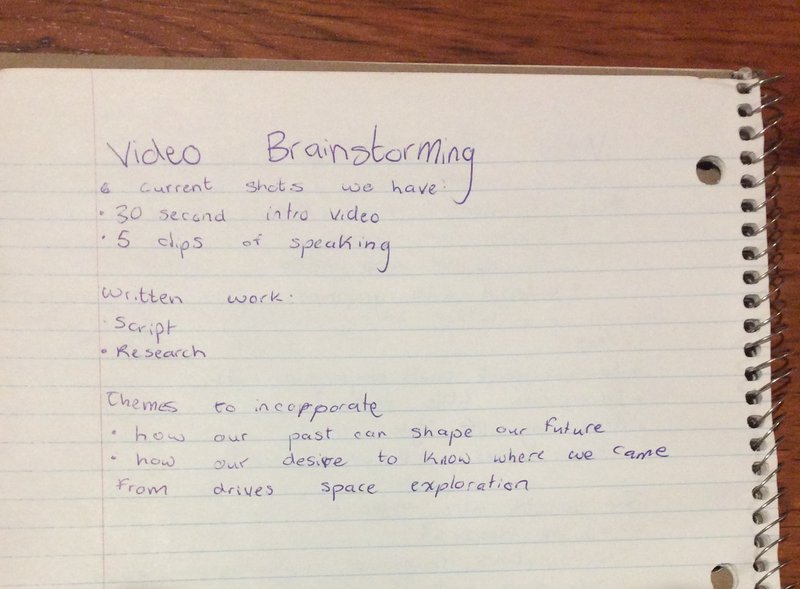 Video Brainstorming
6 current shots we have:
• 30 second intro video
• 5 clips of speaking
Written work:
• Script
• Research
Themes to incorporate
• how our past can shape our future
• how our desire to know where we came
from drives space exploration